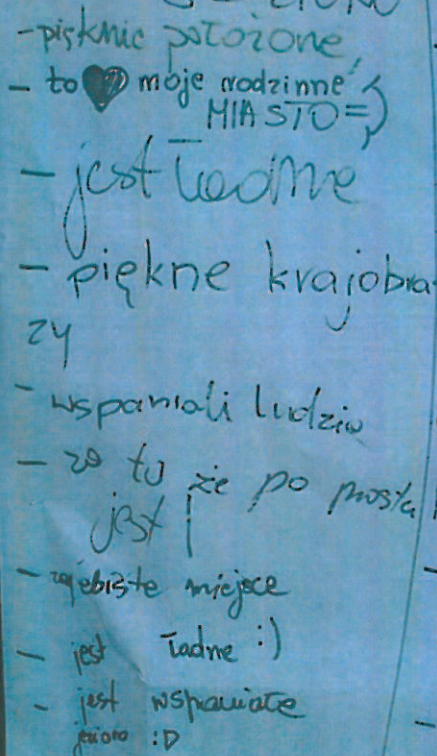 - pięknie położone,
- to ♥ moje rodzinne
MIASTO =)
- jest ładne
- piękne krajobra
zy
- wspaniali ludzie
- za to że po prostu
jest |
- zajebiste miejsce
- jest ładne :)
- jest wspaniałe
jezioro :D